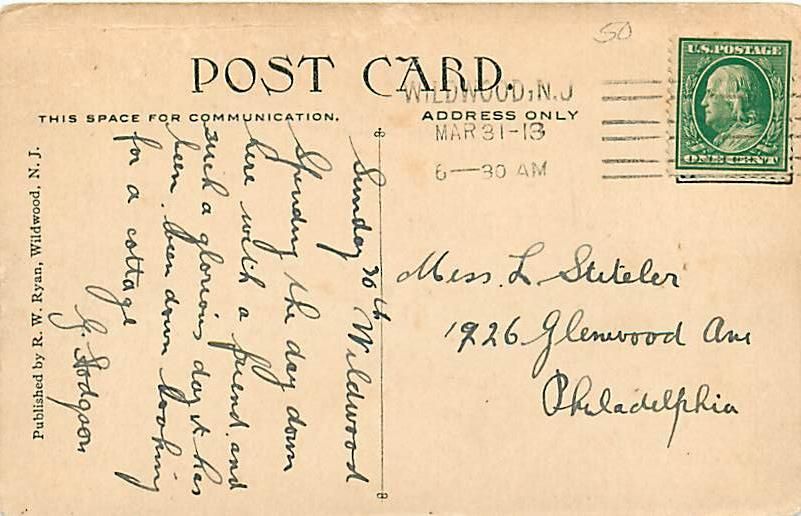 50
U.S. POSTAGE
ONE CENT
POST CARD.
THIS SPACE FOR COMMUNICATION.
ADDRESS ONLY
WILDWOOD, N.J
MAR 31-13
6-30 AM
Sunday 30th Wildwood
Spending the day down
here with a friend and
such a glorious day it has
been. been down looking
for a cottage
G. Hodgson
Miss. L Stiteler
1926 Glenwood Ave
Philadelphia
Published by R. W. Ryan, Wildwood, N. J.